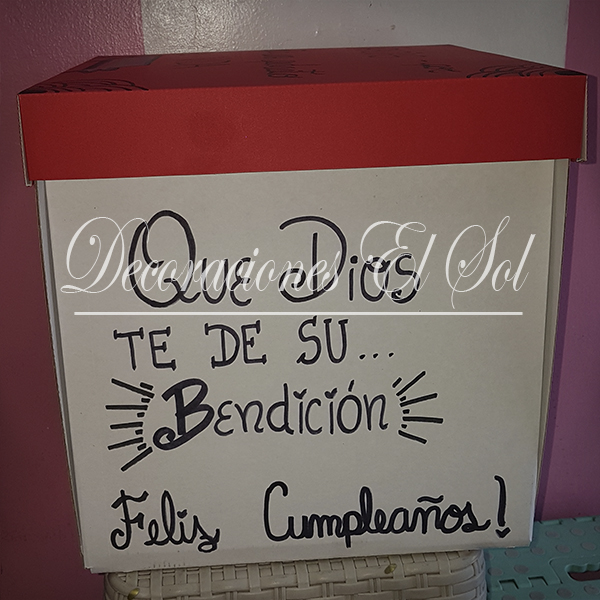 Que Dios
Decoraciones El Sol
TE DE SU...
Bendición
Feliz Cumpleaños!